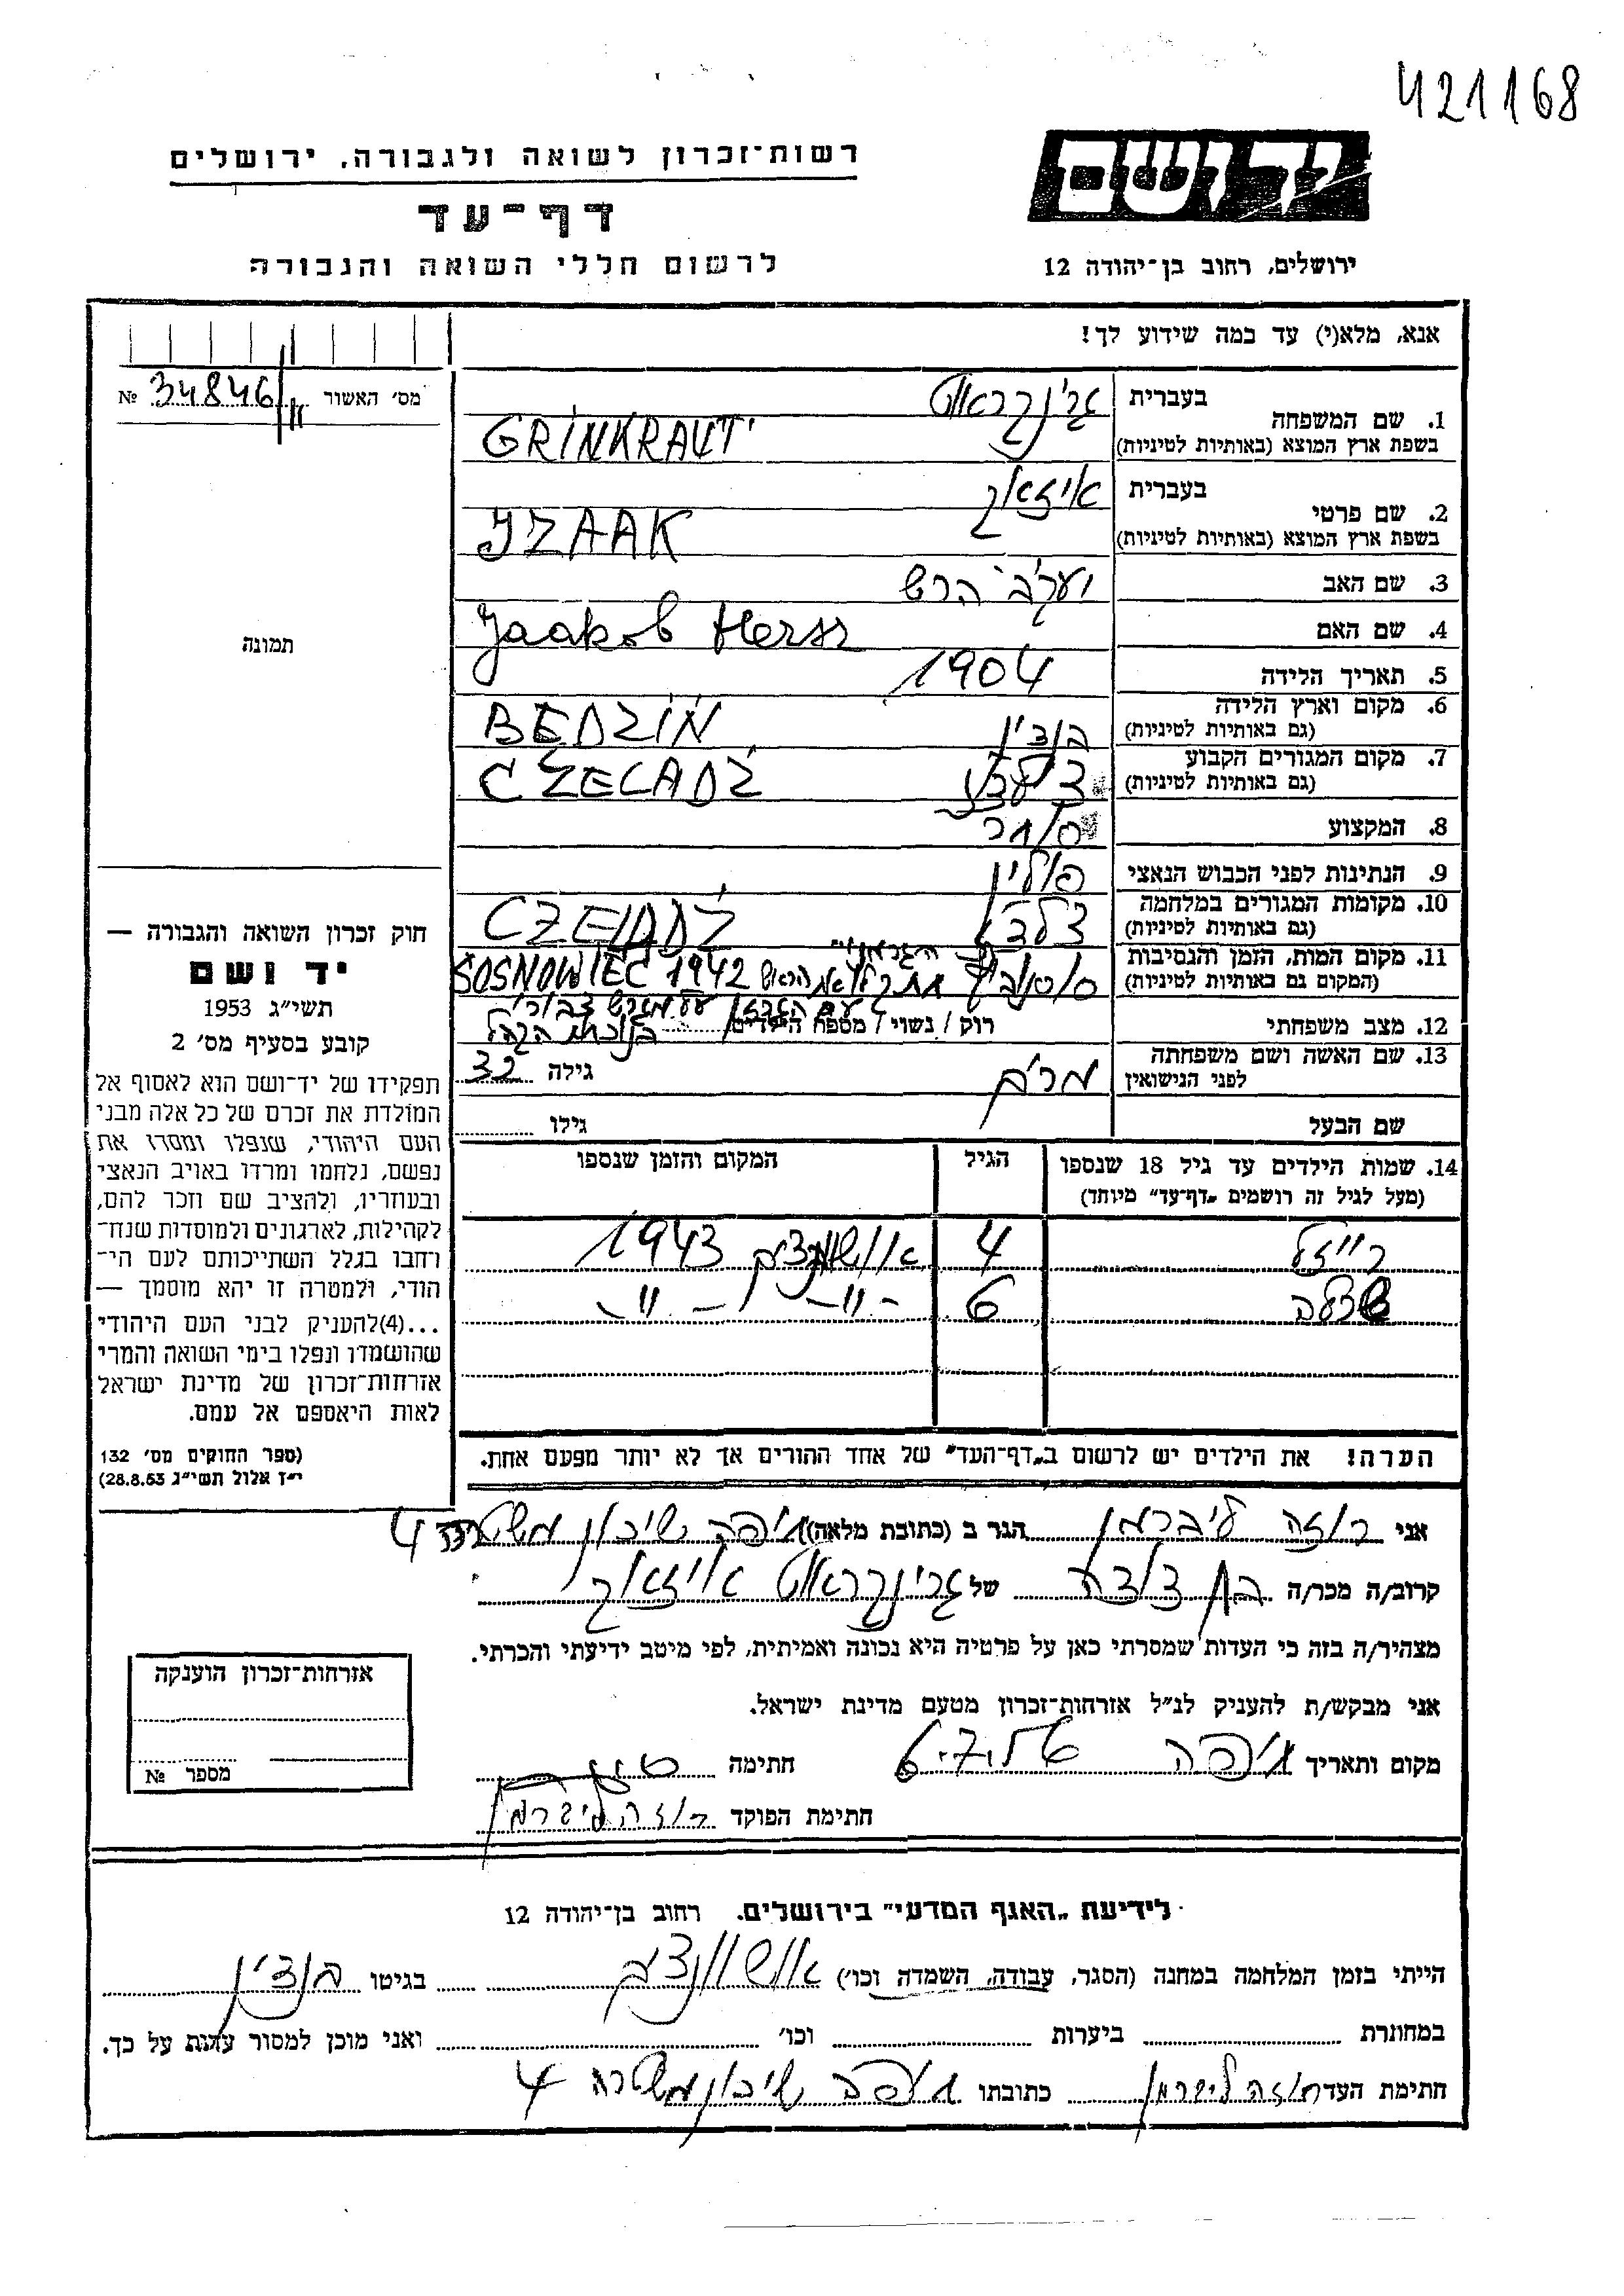 421168
רשות־זכרון לשואה ולגבורה, ירושלים
יד ושם
דף־עד
לרשום חללי השואה והגבורה
ירושלים, רחוב בן־יהודה 12
אנא, מלא(י) עד כמה שידוע לך!
מס׳ האשור 34846 №
1. שם המשפחה בעברית גרינקראוט
בשפת ארץ המוצא (באותיות לטיניות) GRINKRAUT
2. שם פרטי בעברית איזאק
בשפת ארץ המוצא (באותיות לטיניות) JZAAK
3. שם האב יעקב הרש
4. שם האם Jaakob Hersz
5. תאריך הלידה 1904
6. מקום וארץ הלידה (גם באותיות לטיניות) בנדין BEDZIN
7. מקום המגורים הקבוע (גם באותיות לטיניות) CZELADZ
8. המקצוע סוחר
9. הנתינות לפני הכבוש הנאצי פולין
10. מקומות המגורים במלחמה (גם באותיות לטיניות) CZELADZ
11. מקום המות, הזמן והנסיבות (המקום גם באותיות לטיניות) SOSNOWIEC 1942 הראש
12. מצב משפחתי רוק / נשוי / מספר הילדים
על מגרש צבורי
בנוכחות הקהל
13. שם האשה ושם משפחתה לפני הנישואין מרים גילה 32
שם הבעל גילו
14. שמות הילדים עד גיל 18 שנספו (מעל לגיל זה רושמים „דף־עד" מיוחד) הגיל המקום והזמן שנספו
רייזל 4 אושוונצים 1943
6 -״- -״-
הערה! את הילדים יש לרשום ב„דף־העד" של אחד ההורים אך לא יותר מפעם אחת.
תמונה
חוק זכרון השואה והגבורה —
יד ושם
תשי״ג 1953
קובע בסעיף מס׳ 2
תפקידו של יד־ושם הוא לאסוף אל
המולדת את זכרם של כל אלה מבני
העם היהודי, שנפלו ומסרו את
נפשם, נלחמו ומרדו באויב הנאצי
ובעוזריו, ולהציב שם וזכר להם,
לקהילות, לארגונים ולמוסדות שנח־
רחבו בגלל השתייכותם לעם הי־
הודי, ולמטרה זו יהא מוסמך —
...(4)להעניק לבני העם היהודי
שהושמדו ונפלו בימי השואה והמרי
אזרחות־זכרון של מדינת ישראל
לאות היאספם אל עמם.
(ספר החוקים מס׳ 132
י״ז אלול תשי״ג 28.8.53)
אני רוזה ליברמן הגר ב (כתובת מלאה) חיפה שיכון משטרה 4
קרוב/ה מכר/ה בן דודה של גרינקראוט איזאק
מצהיר/ה בזה כי העדות שמסרתי כאן על פרטיה היא נכונה ואמיתית, לפי מיטב ידיעתי והכרתי.
אני מבקש/ת להעניק לנ״ל אזרחות־זכרון מטעם מדינת ישראל.
מקום ותאריך חיפה חתימה
חתימת הפוקד רוזה ליברמן
אזרחות־זכרון הוענקה
מספר №
לידיעת „האגף המדעי" בירושלים. רחוב בן־יהודה 12
הייתי בזמן המלחמה במחנה (הסגר, עבודה, השמדה וכו׳) אושוונצים בגיטו בנדצין
במחתרת ביערות וכו׳ ואני מוכן למסור עדות על כך.
חתימת העד רוזה ליברמן כתובתו חיפה שיכון משטרה 4